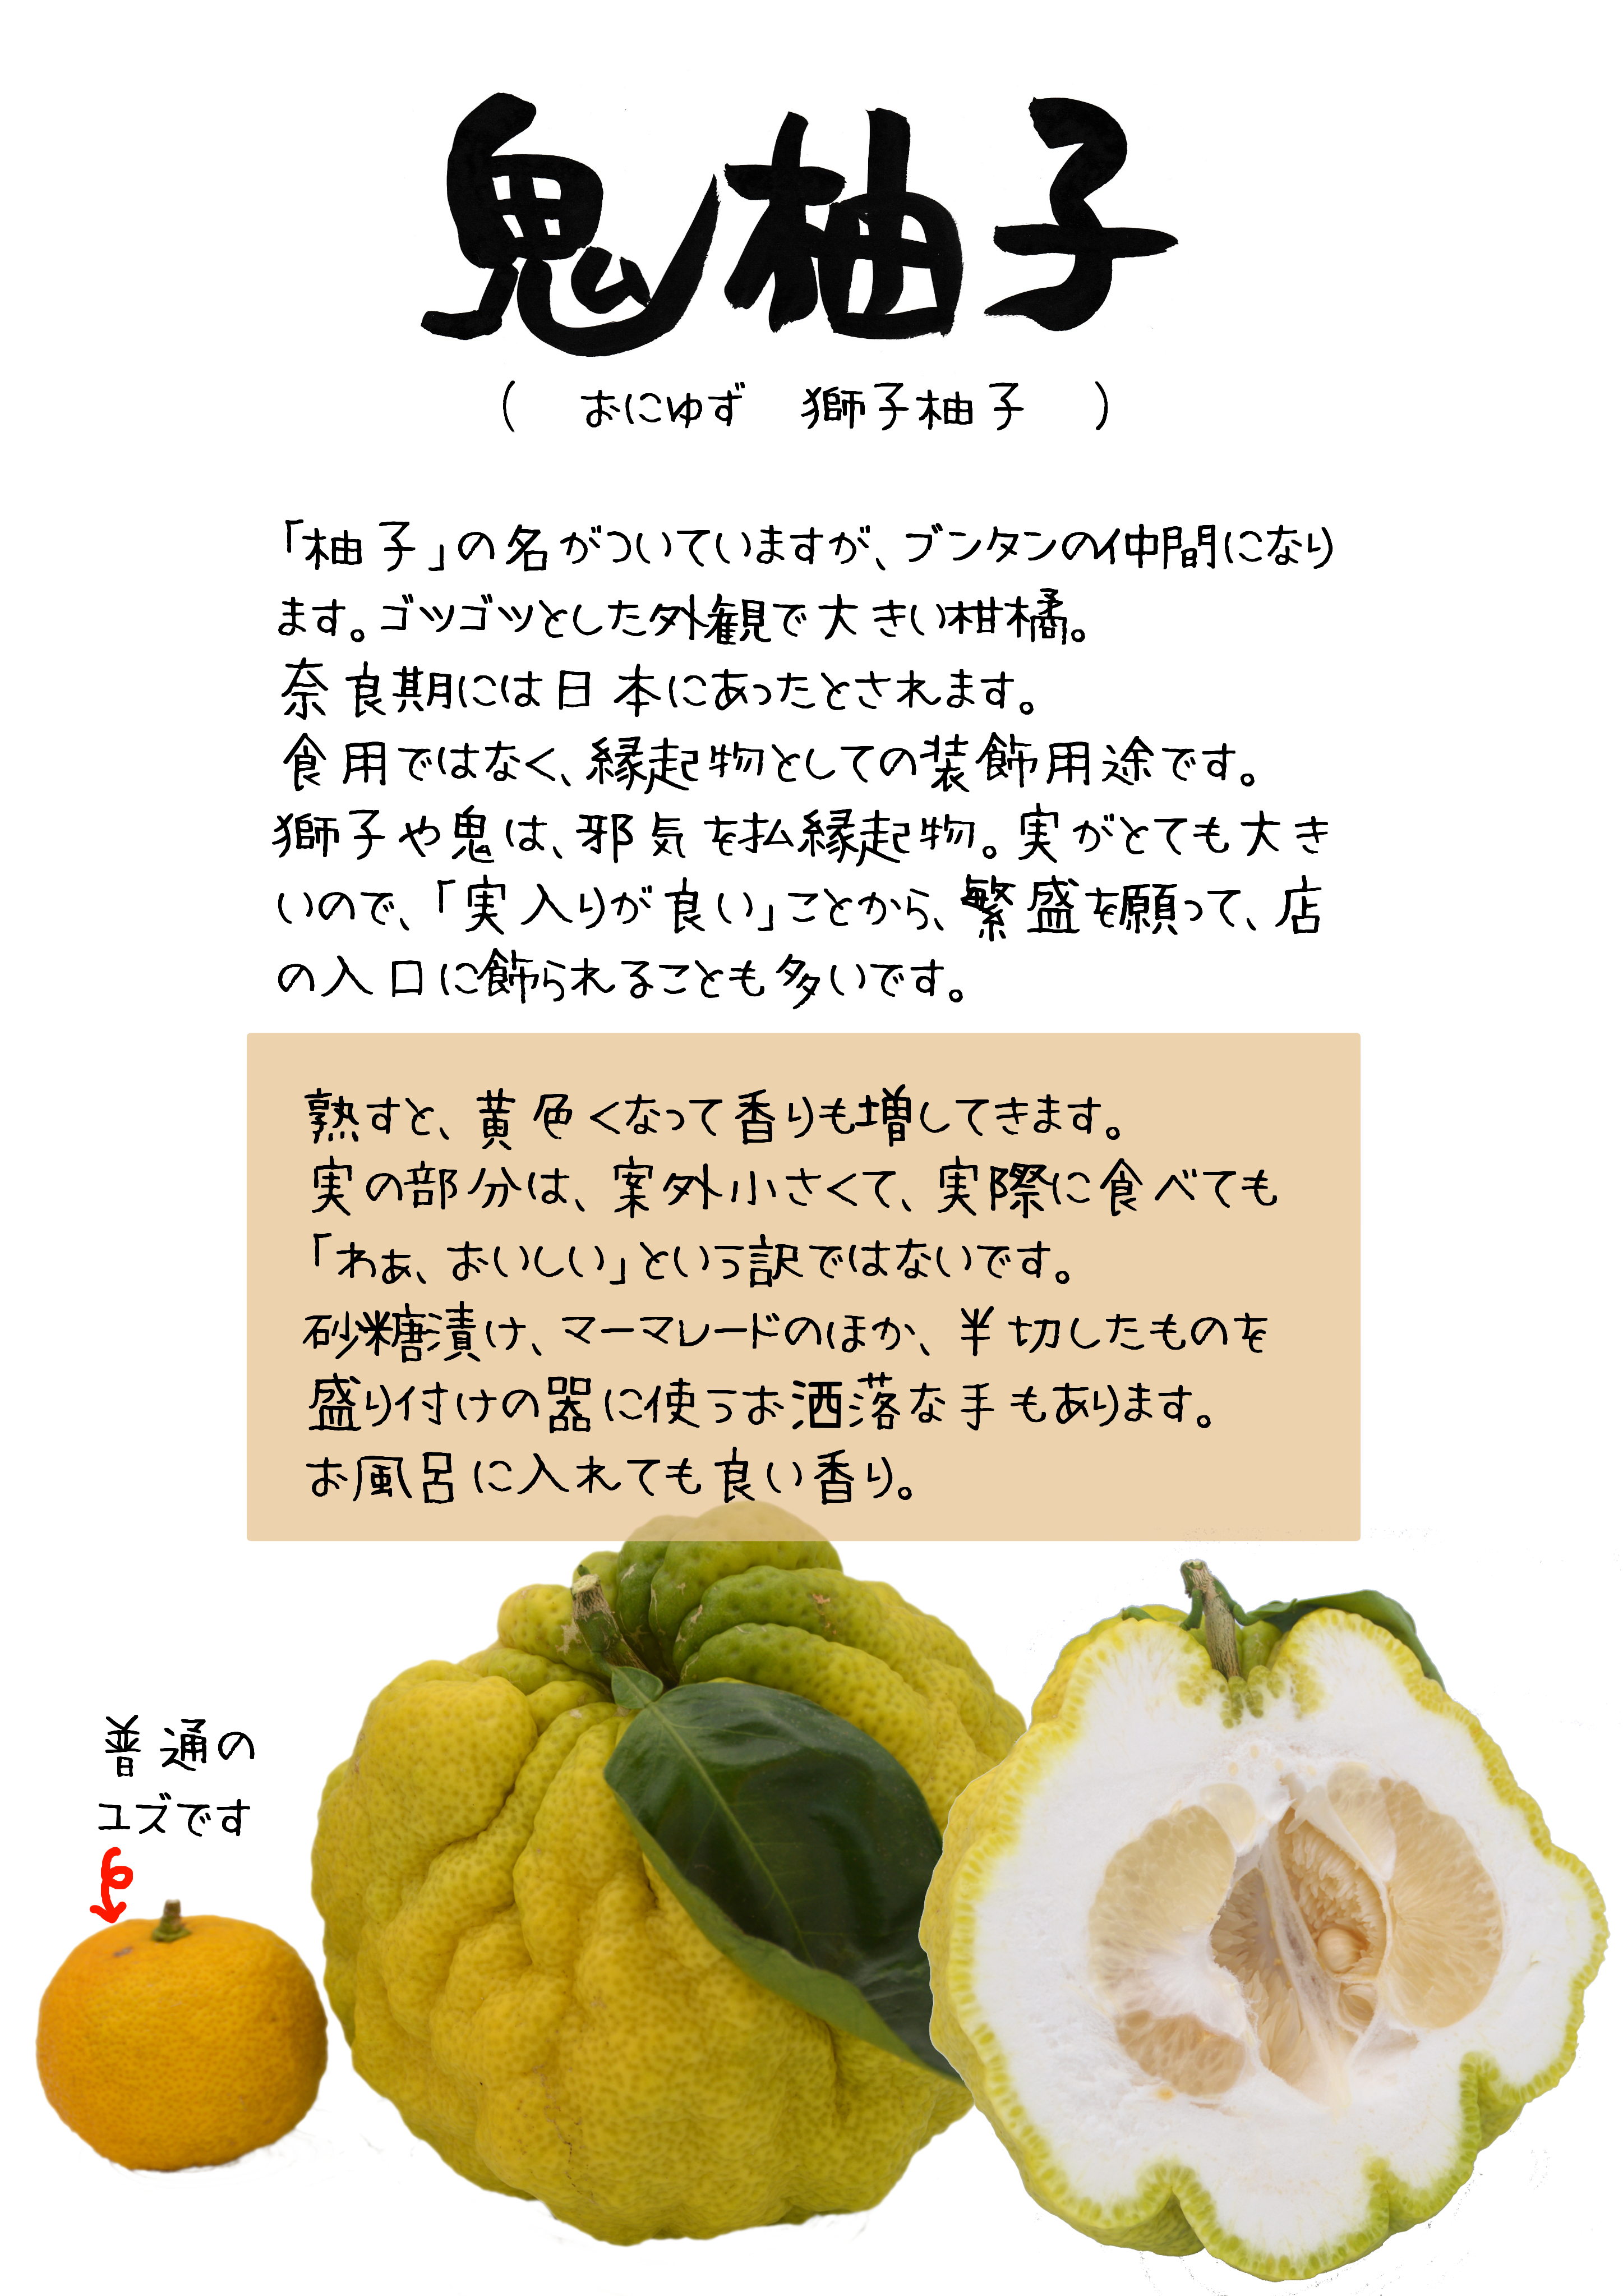 鬼柚子
( おにゆず 獅子柚子 )
「柚子」の名がついていますが、ブンタンの仲間になり
ます。ゴツゴツとした外観で大きい柑橘。
奈良期には日本にあったとされます。
食用ではなく、縁起物としての装飾用途です。
獅子や鬼は、邪気を払縁起物。実がとても大き
いので、「実入りが良い」ことから、繁盛を願って、店
の入口に飾られることも多いです。
熟すと、黄色くなって香りも増してきます。
実の部分は、案外小さくて、実際に食べても
「わぁ、おいしい」という訳ではないです。
砂糖漬け、マーマレードのほか、半切したものを
盛り付けの器に使うお洒落な手もあります。
お風呂に入れても良い香り。
普通の
ユズです